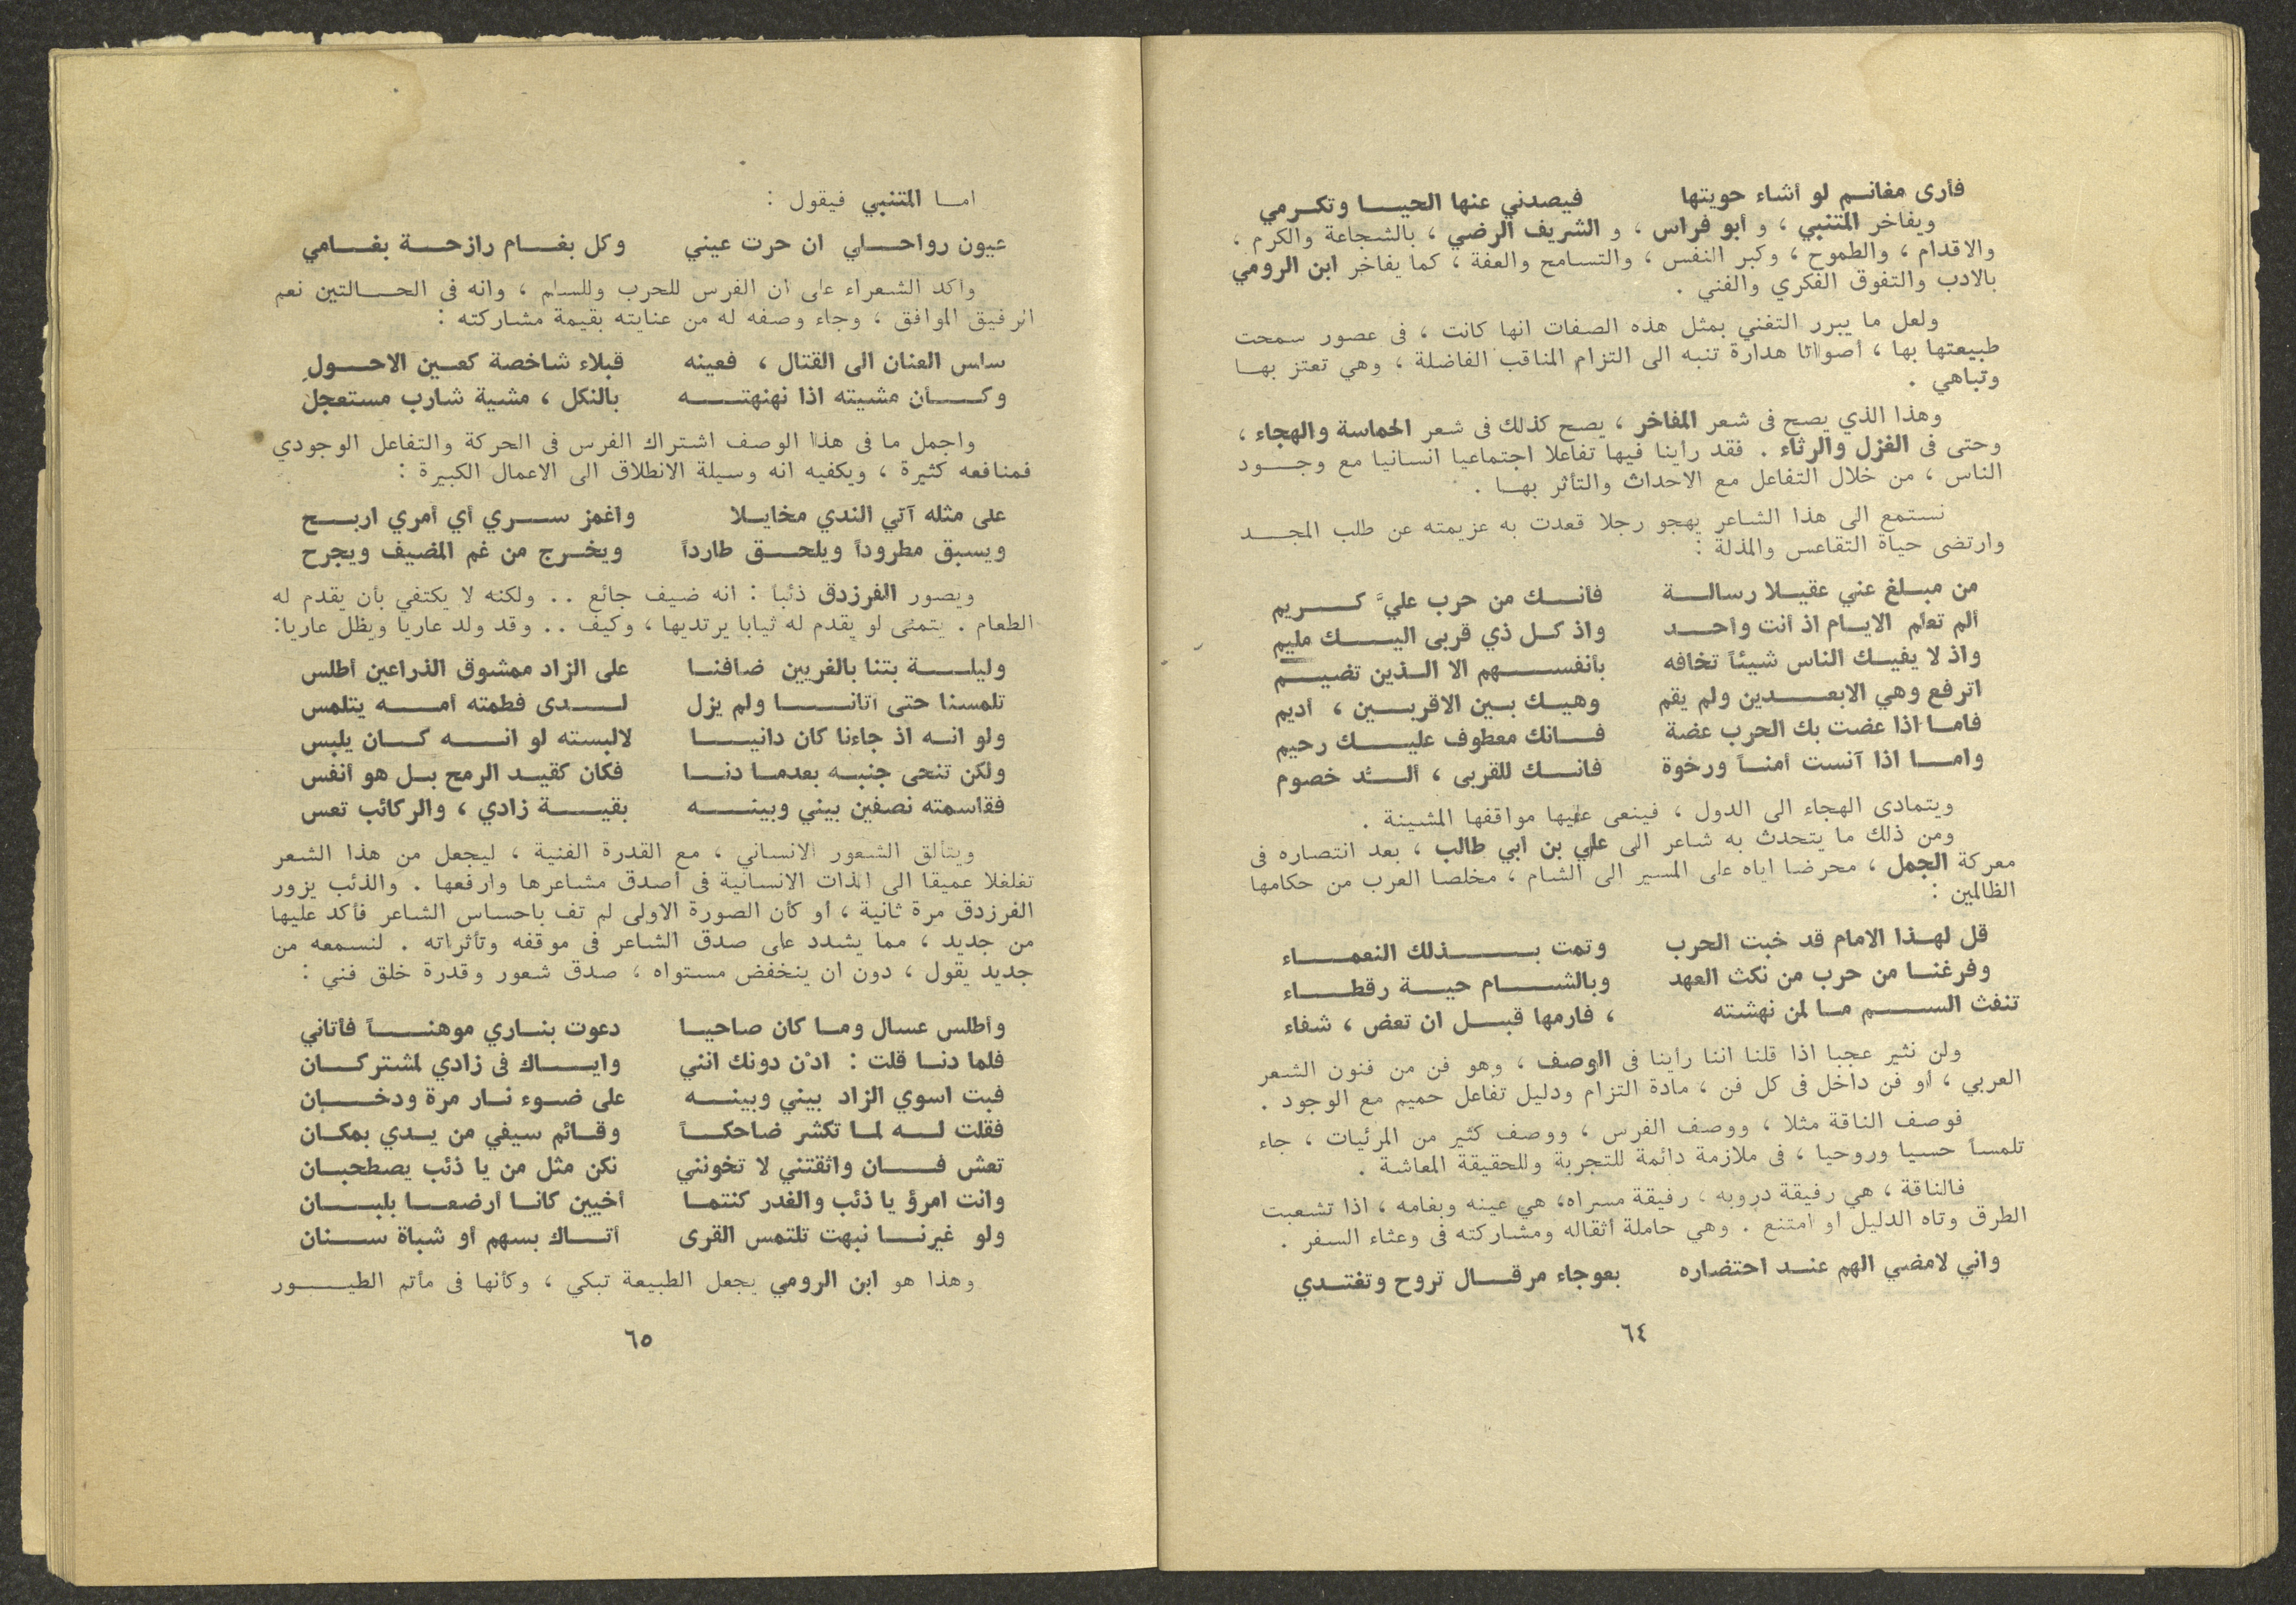 فأرى مغانم لو أشاء حويتها فيصدني عنها الحيا وتكرمي
ويفاخر المتنبي ، و أبو فراس ، و الشريف الرضي ، بالشجاعة والكرم ،
والاقدام ، والطموح ، وكبر النفس ، والتسامح والعفة ، كما يفاخر ابن الرومي
بالادب والتفوق الفكري والفني .
ولعل ما يبرر التغني بمثل هذه الصفات انها كانت ، فى عصور سمحت
طبيعتها بها ، أصواتا هدارة تنبه الى التزام المناقب الفاضلة ، وهي تعتز بها
وتباهي .
وهذا الذي يصح فى شعر المفاخر ، يصح كذلك فى شعر الحماسة والهجاء ،
وحتى فى الغزل والرثاء . فقد رأينا فيها تفاعلا اجتماعيا انسانيا مع وجود
الناس ، من خلال التفاعل مع الاحداث والتأثر بها .
نستمع الى هذا الشاعر يهجو رجلا قعدت به عزيمته عن طلب المجد
وارتضى حياة التقاعس والمذلة :
من مبلغ عني عقيلا رسالة فأنك من حرب عليَّ كريم
ألم تعلم الايام اذ أنت وأحد واذ كل ذي قربى اليك مليم
واذ لا يفيك الناس شيئاً تخافه بأنفسهم الا الذين تضيم
اترفع وهي الابعدين ولم يقم وهيك بين الاقربين ، أديم
فاما اذا عضت بك الحرب عضة فانك معطوف عليك رحيم
واما اذا آنست أمناً ورخوة فانك للقربى ، ألد خصوم
ويتمادى الهجاء الى الدول ، فينعى عليها مواقفها المشينة .
ومن ذلك ما يتحدث به شاعر الى علي بن ابي طالب ، بعد انتصاره فى
معركة الجمل ، محرضا اياه على المسير الى الشام ، مخلصا العرب من حكامها
الظالمين :
قل لهذا الامام قد خبت الحرب وتمت بذلك النعماء
وفرغنا من حرب من نكث العهد وبالشام حية رقطاء
تنفث السم ما لمن نهشته ، فارمها قبل ان تعض ، شفاء
ولن نثير عجبا اذا قلنا اننا رأينا فى الوصف ، وهو فن من فنون الشعر
العربي ، أو فن داخل فى كل فن ، مادة التزام ودليل تفاعل حميم مع الوجود .
فوصف الناقة مثلا ، ووصف الفرس ، ووصف كثير من المرئيات ، جاء
تلمساً حسيا وروحيا ، فى ملازمة دائمة للتجربة وللحقيقة المعاشة .
فالناقة ، هي رفيقة دروبه ، رفيقة مسراه، هي عينه وبغامه ، اذا تشعبت
الطرق وتاه الدليل او امتنع . وهي حاملة أثقاله ومشاركته فى وعثاء السفر .
واني لامضي الهم عند احتضاره بعوجاء مرقال تروح وتغتدي
٦٤
اما المتنبي فيقول :
عيون رواحلي ان حرت عيني وكل بغام رازحة بغامي
واكد الشعراء على ان الفرس للحرب وللسلم ، وانه فى الحالتين نعم
الرفيق الموافق ، وجاء وصفه له من عنايته بقيمة مشاركته :
سلس العنان الى القتال ، فعينه قبلاء شاخصة كعين الاحولِ
وكأن مشيته اذا نهنهته بالنكل ، مشية شارب مستعجل
واجمل ما فى هذا الوصف اشتراك الفرس فى الحركة والتفاعل الوجودي
فمنافعه كثيرة ، ويكفيه انه وسيلة الانطلاق الى الاعمال الكبيرة :
على مثله آتي الندي مخايلا واغمز سري أي أمري اربح
ويسبق مطروداً ويلحق طارداً ويخرج من غم المضيف ويجرح
ويصور الفرزدق ذئبا : انه ضيف جائع .. ولكنه لا يكتفي بأن يقدم له
الطعام . يتمنى لو يقدم له ثيابا يرتديها ، وكيف .. وقد ولد عاريا ويظل عاريا:
وليلة بتنا بالغريين ضافنا على الزاد ممشوق الذراعين أطلس
تلمسنا حتى أتانا ولم يزل لدى فطمته أمه يتلمس
ولو انه اذ جاءنا كان دانيا لالبسته لو انه كان يلبس
ولكن تنحى جنبه بعدما دنا فكان كقيد الرمح بل هو أنفس
فقاسمته نصفين بيني وبينه بقية زادي ، والركائب تعس
ويتالق الشعور الانساني ، مع القدرة الفنية ، ليجعل من هذا الشعر
تغلغلا عميقا الى الذات الانسانية فى أصدق مشاعرها وارفعها . والذئب يزور
الفرزدق مرة ثانية ، أو كأن الصورة الاولى لم تف باحساس الشاعر فأكد عليها
من جديد ، مما يشدد على صدق الشاعر فى موقفه وتأثراته . لنسمعه من
جديد يقول ، دون ان ينخفض مستواه ، صدق شعور وقدرة خلق فني :
وأطلس عسال وما كان صاحيا دعوت بناري موهناً فأتاني
فلما دنا قلت : ادْن دونك انني واياك فى زادي لمشتركان
فبت اسوي الزاد بيني وبينه على ضوء نار مرة ودخان
فقلت له لما تكشر ضاحكاً وقائم سيفي من يدي بمكان
تعش فان واثقتني لا تخونني نكن مثل من يا ذئب يصطحبان
وانت امرؤ يا ذئب والغدر كنتما أخيين كانا أرضعا بلبان
ولو غيرنا نبهت تلتمس القرى أتاك بسهم أو شباة سنان
وهذا هو ابن الرومي يجعل الطبيعة تبكي ، وكأنها فى مأتم الطيور
٦٥